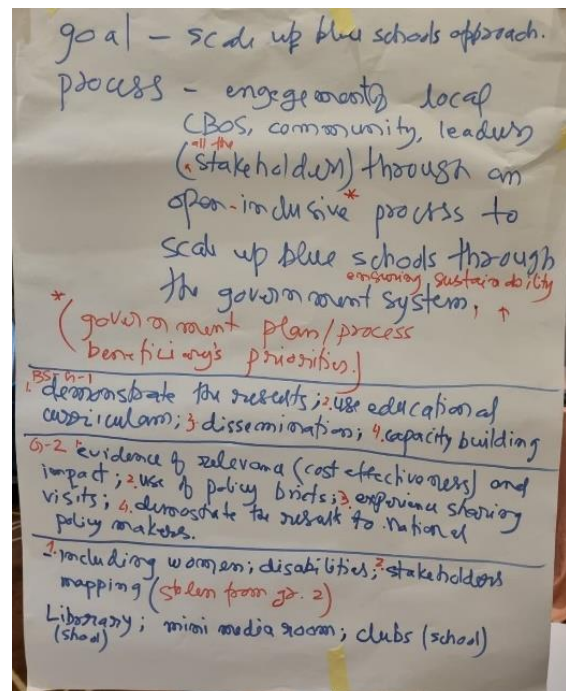 goal - scale up blue schools approach.
process - engagement of local
CBOs, community, leaders
all the
(stakeholders) through an
open-inclusive* process to
scale up blue schools through
ensuring sustainability
the government system. ↑
*(government plan/process
beneficiary's priorities.)
BS-G-1
1. demonstrate the results; 2. use educational
curriculam; 3. dissemination; 4. capacity building
G-2 1. evidence of relevance (cost effectiveness) and
impact; 2. use of policy briefs; 3. experience sharing
visits; 4. demostrate the result to national
policy makers.
1. including women; disabilities; 2. stakeholders
mapping (stolen from gr. 2)
Library; mini media room; clubs (school)
(shool)